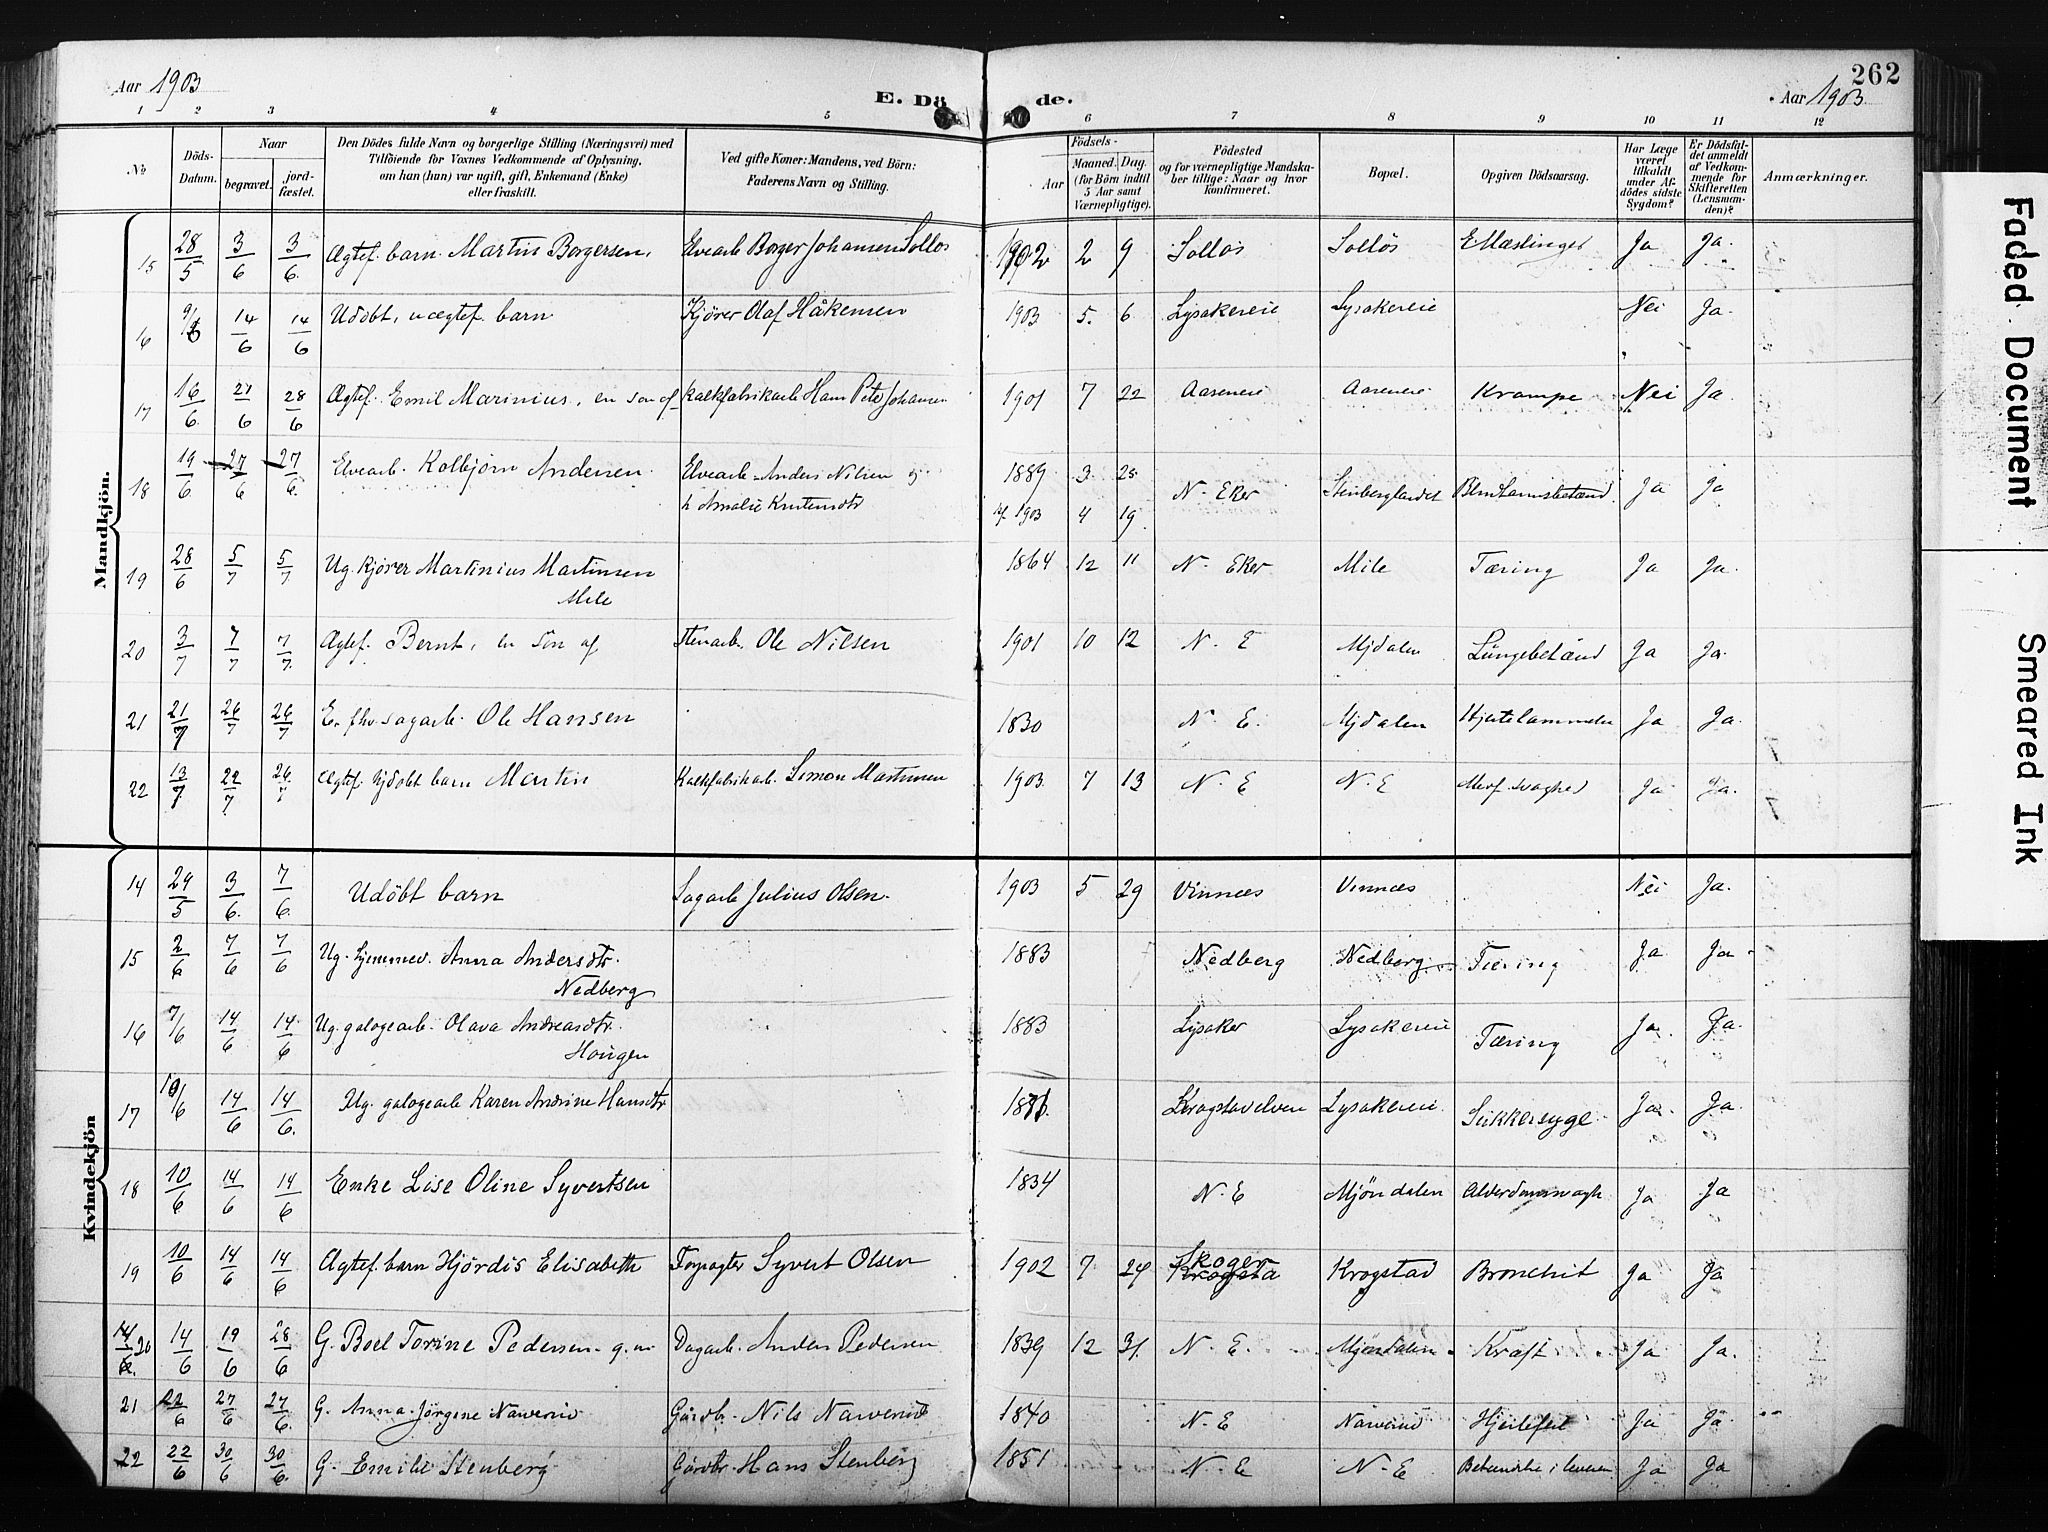 Aar 1903
E. Dö de.
262
Aar 1903
1 2 3 4 5 6 7 8 9 10 11 12
No
Döds-Datum.
Naar
begravet.
jordfæstet.
Den Dödes fulde Navn og borgerlige Stilling (Næringsvei) med
Tilföiende for Voxnes Vedkommende af Oplysning,
om han (hun) var ugift, gift, Enkemand (Enke)
eller fraskilt.
Ved gifte Koner: Mandens, ved Börn:
Faderens Navn og Stilling.
Födsels-
Aar
Maaned. Dag.
(for Börn indtil
5 Aar samt
Værnepligtige).
Födested
og for værnepligtige Mandska-
ber tillige: Naar og hvor
konfirmeret.
Bopæl.
Opgiven Dödsaarsag.
Har Læge
været
tilkaldt
under Af-
dödes sidste
Sygdom?
Er Dödsfal-
det anmeldt
af Vedkom-
mende for
Skifteretten
(Lensman-
den)?
Anmærkninger.
Mandkjön.
15 28/5 3/6 3/6 Ægtef. barn Martin Borgersen, Elvearb Borger Johansen Solløs 1902 2 9 Solløs Solløs Mæslinger Ja Ja.
16 9/6 14/6 14/6 Udøbt, uægtef. barn Kjører Olaf Håkensen 1903 5. 6 Lysakereie Lysakereie Nei Ja.
17 16/6 21/6 28/6 Ægtef. Emil Marinius, en søn af Kalkfabrikarb Hans Peter Johansen 1901 7 22 Aaseneie Aaseneie Krampe Nei Ja
18 19/6 27/6 27/6 Elvearb. Kolbjørn Andersen. Elvearb. Anders Nilsen og
h Amalie Knutsendtr 1889 3. 28 N. Eker Ja Ja
1903 4 19
19 28/6 5/7 5/7 Ug. Kjører Martinius Martinsen
Mile 1864 12 11 N. Eker Mile Tæring Ja Ja.
20 3/7 7/7 7/7 Ægtef. Bernt, en søn af Stenarb. Ole Nilsen 1901 10 12 N. E Mjdalen Lungebetænd Ja Ja.
21 21/7 26/7 26/7 E. fhv sagarb. Ole Hansen 1830 N. E. Mjdalen Hjertelammelse Ja Ja.
22 13/7 22/7 26/7 Ægtef. hjdøbt barn Martin Kalkfabrikarb. Simon Martinsen 1903 7 13 N. E N. E Medf. svaghed Ja Ja.
Kvindekjön
14 29/5 3/6. 7/6. Udöbt barn Sagarb Julius Olsen. 1903 5 29 Vinnæs Vinnæs Nei Ja.
15 2/6 7/6 7/6 Ug. hjemmev. Anna Andersdtr.
Nedberg 1883 Nedberg Nedberg Tæring Ja Ja.
16 7/6 14/6 14/6 Ug. galogearb. Olava Andreasdtr.
Hougen 1883 Lysaker Lysakereie Tæring Ja. Ja.
17 10/6 14/6 14/6. Ug. galogearb Karen Andrine Hansdtr Krogstadelven Lysakereie Sukkersyge Ja. Ja.
18 10/6 14/6 14/6 Enke Lise Oline Syvertsen 1834 N. E Mjöndalen Alderdomssvagh Ja Ja
19 10/6 14/6 14/6 Ægtef. barn Hjördis Elisabeth Forpagter Syvert Olsen 1902 7 24 Skoger Krogsta Krogstad Bronchit Ja Ja
20 14/6 19/6 28/6 G. Boel Torine Pedersen. g. m. Dagarb. Anders Pedersen 1839 12 31. N. E. Mjöndalen Kræft Ja Ja.
21 22/6 27/6 27/6. G. Anna Jørgine Narverud Gårdbr. Nils Narverud 1840 N. E Narverud Hjertefeil Ja Ja
22 22/6 30/6 30/6 G. Emilie Stenberg Gårdbr. Hans Stenberg 1851 N. E N. E Betændelse i leveren Ja Ja
Faded Document
Smeared Ink